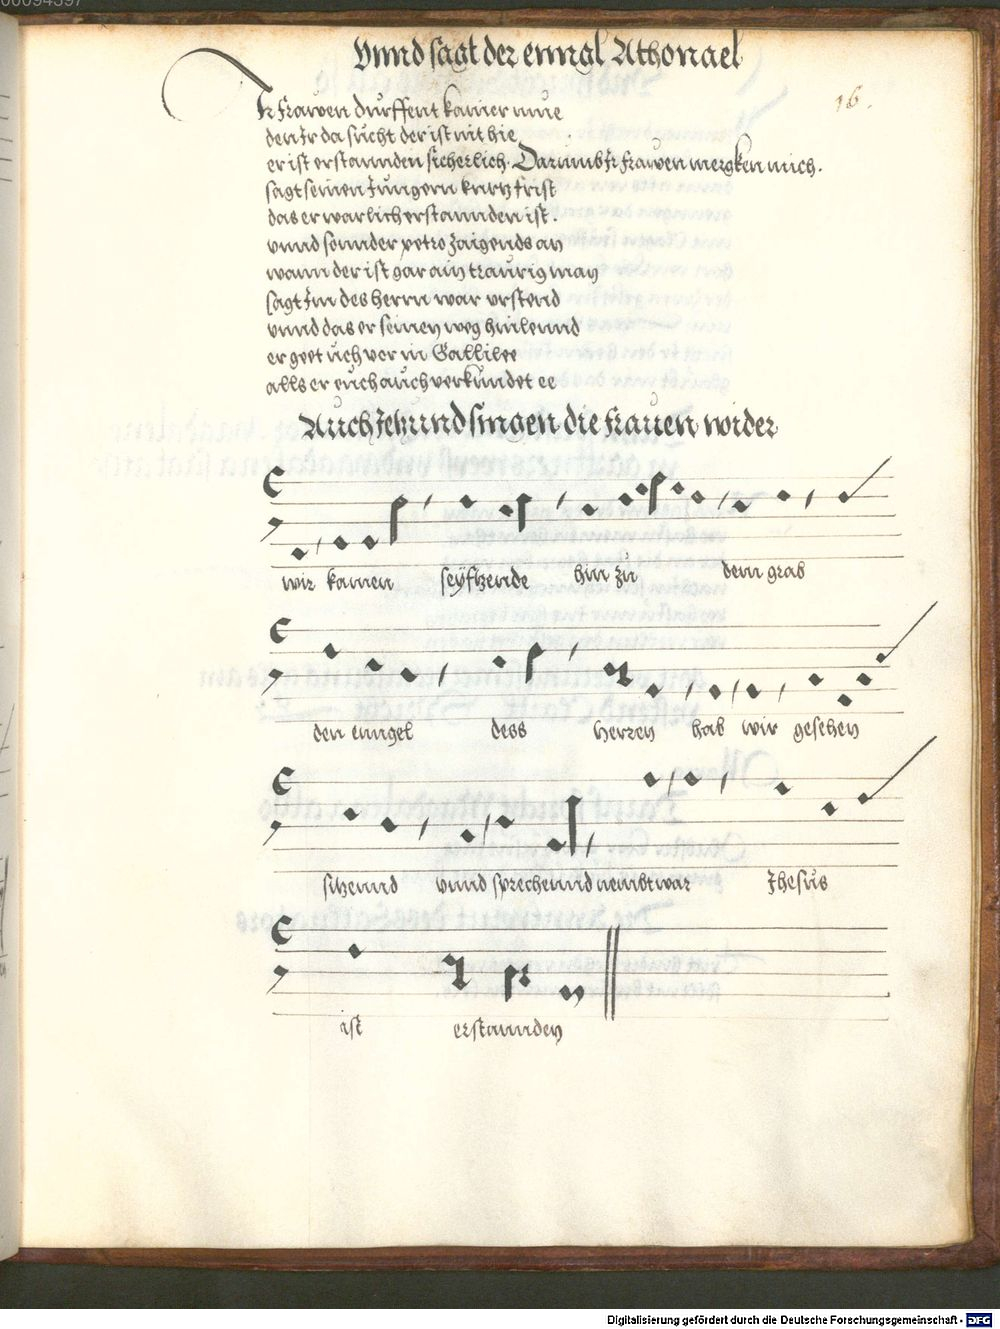 Vnnd sagt der enngl Athonael
16.
Ir frawen durffent kainer mue
den Ir da sücht der ist nit hie
er ist erstannden sicherlich. Darumb Ir frawen mergken mich.
sagt seinen Jüngern kurtz frist
das er warlich erstannden ist.
vnnd sonnder petro zaigends an
wann der ist gar ain traurig man
sagt Im des herrn war vrstend
vnnd das er seinen weg hin lennd
er geet üch vor in Gallilee
alls er euch auch verkündet ee
Auch Jetzund singen die frauen wider
wir kamen seÿfftzende hin zü dem grab
den enngel dess herren hab wir gesehen
sitzennd vnnd sprechennd nembt war Jhesüs
ist erstannden
Digitalisierung gefördert durch die Deutsche Forschungsgemeinschaft - DFG